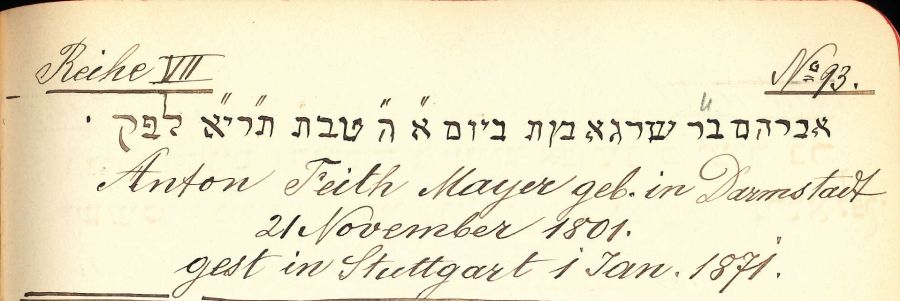 Reihe VII
No 93.
אברהם ב״ר שרגא ביום א״ ה״ טבת תרי״א לפק
Anton Feith Mayer geb. in Darmstadt
21 November 1801.
gest in Stuttgart 1 Jan. 1871.